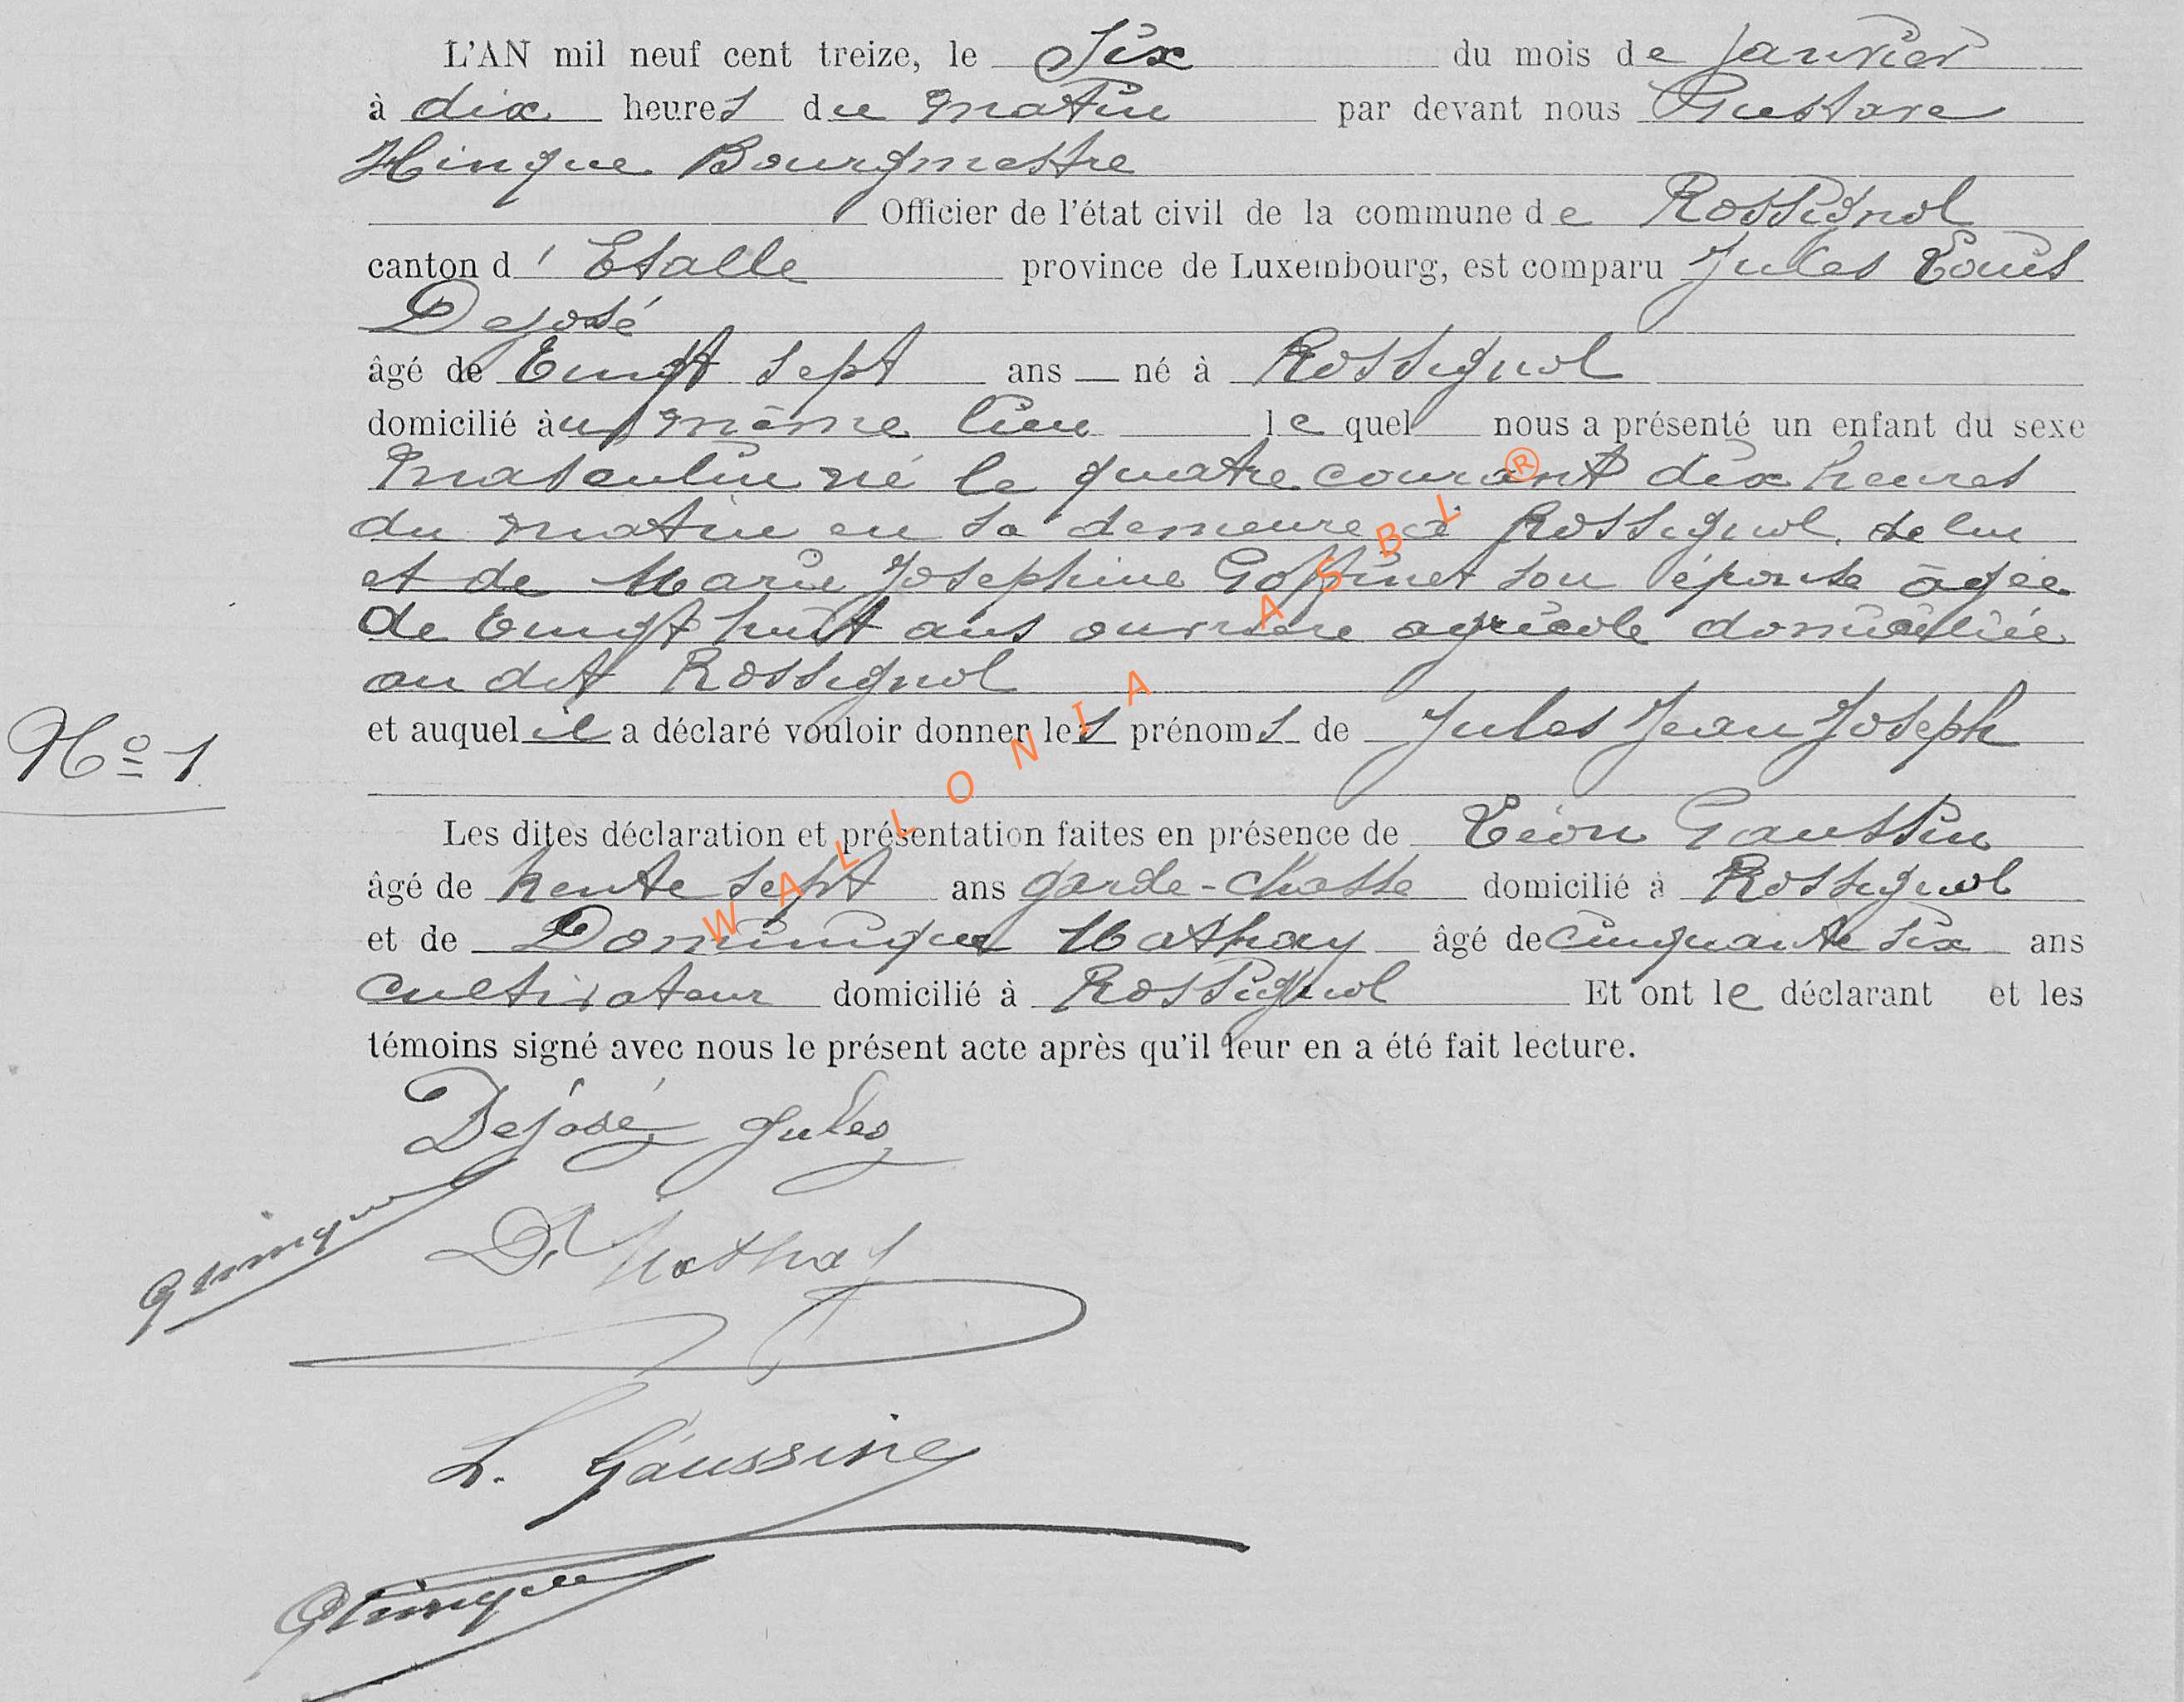 L'AN mil neuf cent treize, le Six du mois de janvier
à dix heures du matin par devant nous Gustave
Hinque Bourgmestre
Officier de l'état civil de la commune de Rossignol
canton d'Etalle province de Luxembourg, est comparu Jules Louis
Dejosé
âgé de Vingt sept ans — né à Rossignol
domicilié au même lieu lequel nous a présenté un enfant du sexe
masculin né le quatre courant dix heures
du matin en sa demeure à Rossignol de lui
et de Marie Josephine Goffinet son épouse âgée
de vingt huit ans ouvrière agricole domiciliée
au dit Rossignol
N° 1
et auquel il a déclaré vouloir donner les prénoms de Jules Jean Joseph
Les dites déclaration et présentation faites en présence de Léon Gaussin
âgé de trente sept ans garde-chasse domicilié à Rossignol
et de Dominique Mathay âgé de cinquante six ans
cultivateur domicilié à Rossignol Et ont le déclarant et les
témoins signé avec nous le présent acte après qu'il leur en a été fait lecture.
Dejosé Jules
GHinque
D. Mathay
L. Gaussine
GHinque
WALLONIA ASBL ®